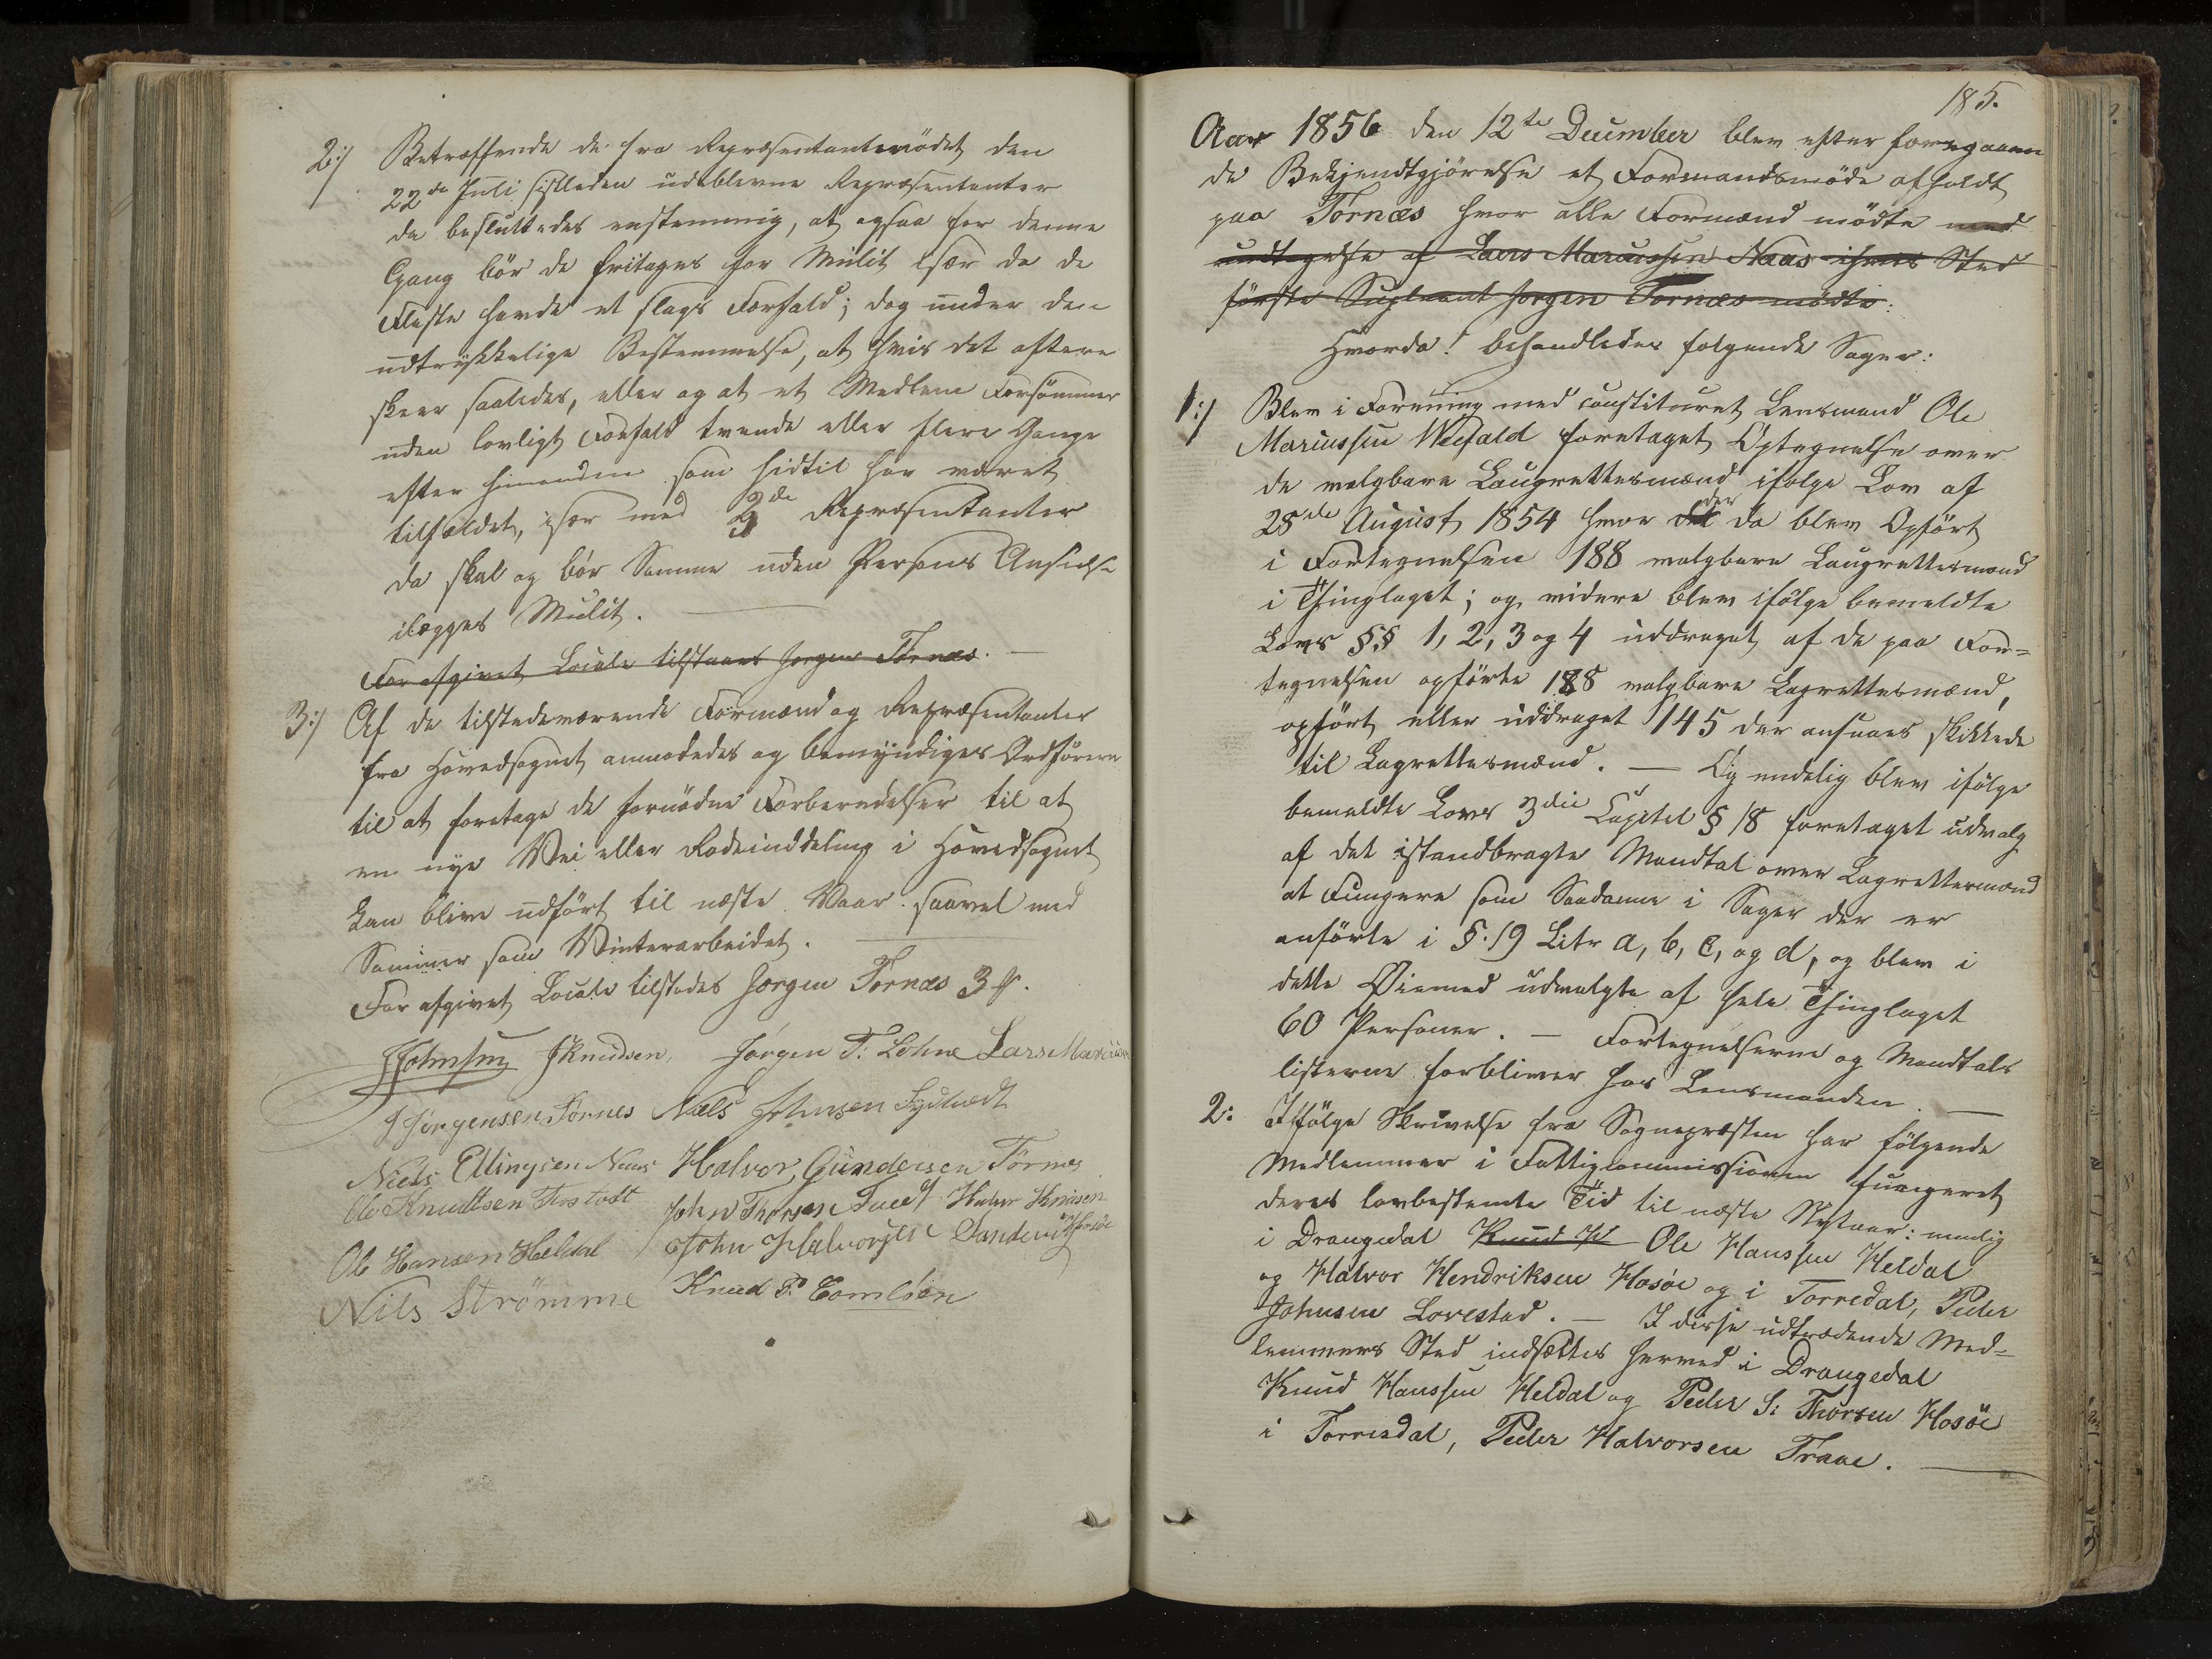 2:/ Betræffende de fra Repræsentantmødet den
22de Juli sistleden udeblevne Repræsentanter
da besluttedes enstemmig, at ogsaa for denne
Gang bör de fritages for Mulit især da de
Fleste havde et slags Forfald; dog under den
udtrykkelige Bestemmelse, at hvis det oftere
skeer saaledes, eller og at et Medlem Forsömmer
uden lovligt Forfald trende eller flere Gange
efter hinanden som hidtil har været
tilfældet, især med 3de Repræsentanter
da skal og bör Samme uden Persons Anseelse
ilægges Mulit.
For afgivet Locale tilstaaes Jørgen Törnæs. —
3:/ Af de tilstedeværende Formænd og Repræsentanter
fra Hovedsognet anmodedes og bemyndiges Ordföreren
til at foretage de fornödne Forberedelser til at
en nye Vei eller Rodeinddeling i Hovedsognet
kan blive udfört til næste Vaar saavel med
Sommer som Vinterarbeidet.
For afgivet Locale tilstodes Jørgen Tørnæs 3
JJohnsen JKnudsen, Jörgen T: Lohne Lars Marcusen
J Jörgensen Törnes Niels Johnsen
Niels Ellingsen Naas Halvor Gundersen Törnes
Ole Knudtsen John Thorsen
Ole Hansen Heldal John Halvorsen
Nils Strömme Knud
185.
Aar 1856 den 12te December blev efter foregaaen
de Bekjendtgjörelse et Formandsmöde afholdt
paa Törnæs hvor alle Formænd mödte med
undtagelse af Lars Marcussen Naas i hvis Sted
förste Supleant Jørgen Törnæs mödte.
Hvorda! behandledes følgende Sager:
1:/ Blev i Forening med constitueret Lensmand Ole
Mariussen Weefald foretaget Optegnelse over
de valgbare Laugrettesmænd ifølge Lov af
28de August 1854 hvor der da blev Opfört
i Fortegnelsen 188 valgbare Laugrettesmænd
i Thinglaget; og videre blev ifölge bemeldte
Lovs §§ 1, 2, 3 og 4 uddraget af de paa For=
tegnelsen opförte 188 valgbare Lagrettesmænd,
opfört eller uddraget 145 der ansaaes skikkede
til Lagrettesmænd. — Og endelig blev ifölge
bemeldte Lovs 3die Capitel § 18 foretaget udvalg
af det istandbragte Mandtal over Lagrettesmænd
at Fungere som Saadanne i Sager der er
anförte i §. 19 Litr a, b, c, og d, og blev i
dette Øiemed udvalgte af hele Thinglaget
60 Personer. — Fortegnelserne og Mandtals
listerne forbliver hos Lensmanden. —
2: Ifölge Skrivelse fra Sognepræsten har fölgende
Medlemmer i Fattigcommissionen fungeret
deres lovbestemte Tid til næste Nytaar: nemlig
i Drangedal Knud H Ole Hanssen Heldal
og Halvor Hendriksen Hosøe og i Torredal, Peder
Johnsen Lovestad. — I disse udtrædende Med=
lemmers Sted indsættes herved i Drangedal
Knud Hanssen Heldal og Peder S: Thorsen Hosöe
i Torredal, Peder Halvorsen Traae. —